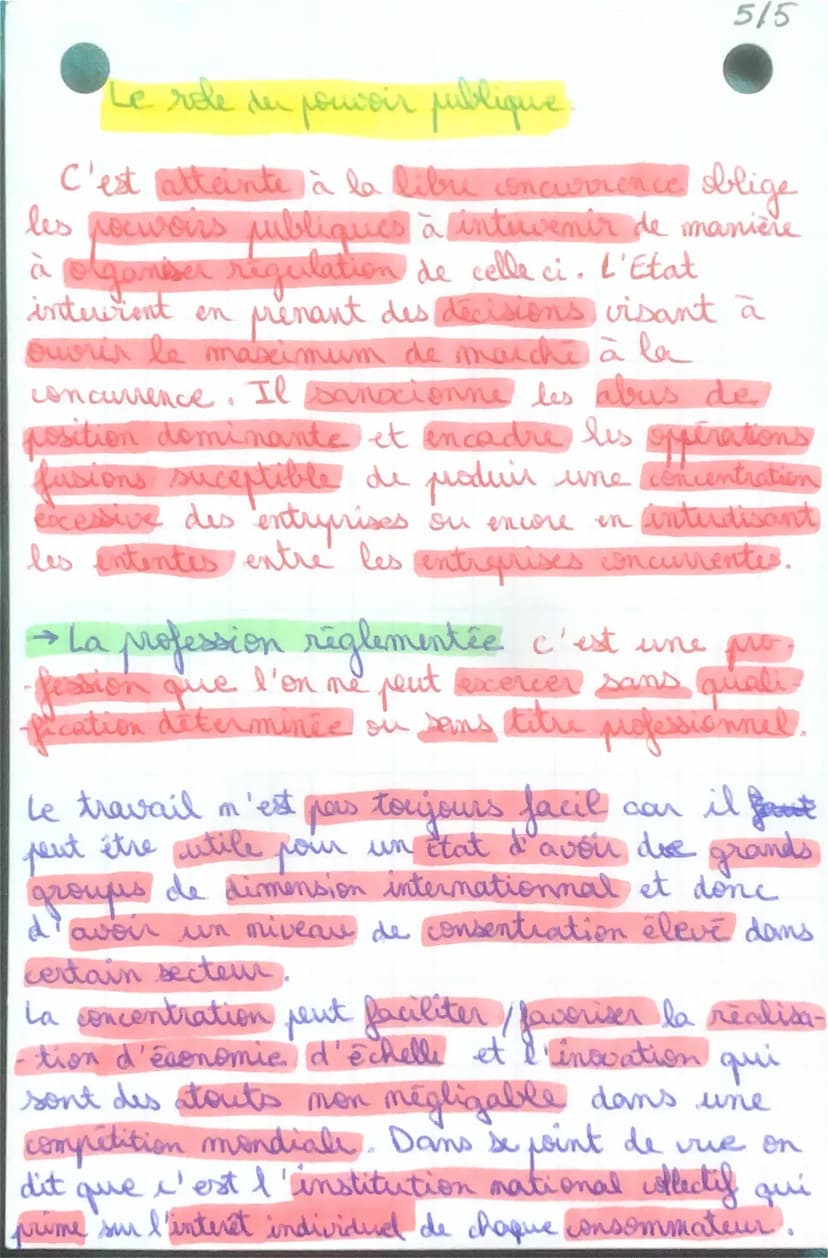 5/5
Le role du pouvoir publique
C'est atteinte à la libre concurrence oblige
les pouvoirs publiques à intervenir de manière
à organiser régulation de celle ci. L'État
intervient en prenant des décisions visant à
ouvrir le maximum de marché à la
concurrence. Il sanxcionne les abus de
position dominante et encadre les oppérations
fusions suceptible de produir une concentration
excessive des entreprises ou encore en interdisant
les ententes entre les entreprises concurrentes.
→ La profession réglementée c'est une pro-
-fession que l'on ne peut excercer sans quali-
-fication déterminée ou sans titre professionnel.
Le travail n'est pas toujours facil car il faut
peut être utile pour un état d'avoir de grands
groupes de dimension internationnal et donc
d'avoir un niveau de consentration élevé dans
certain secteur.
La concentration peut faciliter / favoriser la réalisa-
-tion d'économie d'échelle et l'inovation qui
sont des atouts non négligable dans une
compétition mondiale. Dans se point de vue on
dit que c'est l'institution national collectif qui
prime sur l'interêt individuel de chaque consommateur.